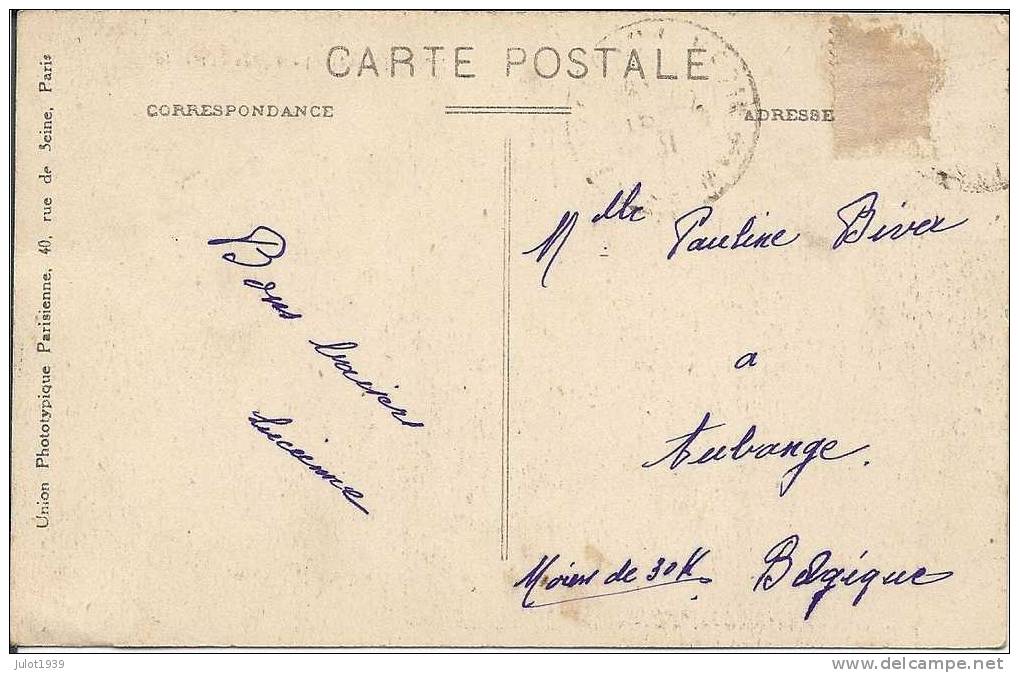 CARTE POSTALE
CORRESPONDANCE
ADRESSE
Union Phototypique Parisienne, 40, rue de Seine, Paris
Bons baisers
Lucienne
Mlle Pauline Biver
a
Aubange.
Moins de 30 K
Belgique
julot1939
www.delcampe.net